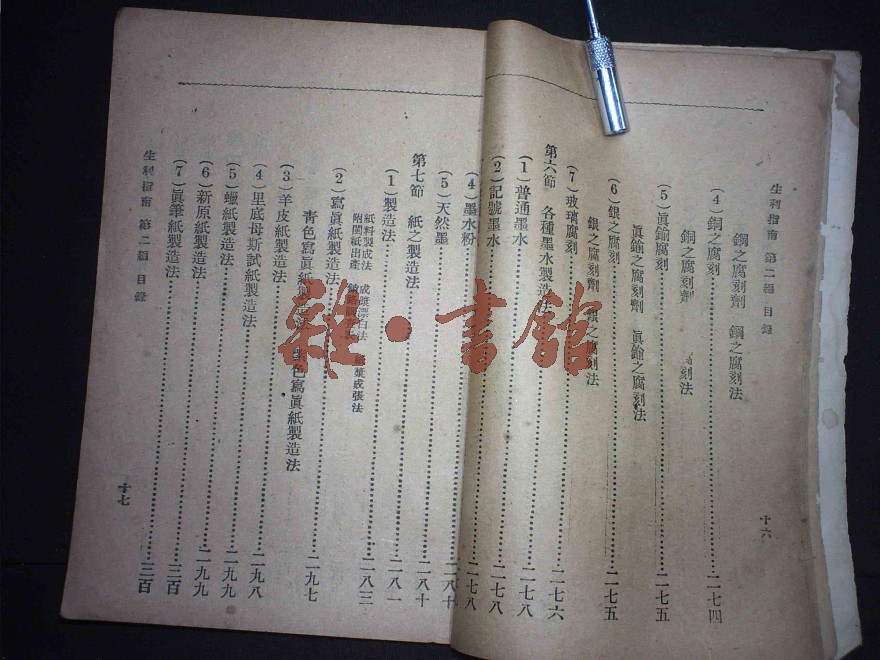 生利指南 第二編 目錄
十六
鋼之腐刻劑 鋼之腐刻法
(4)銅之腐刻 二七四
銅之腐刻劑 刻法
(5)眞鍮腐刻 二七五
眞鍮之腐刻劑 眞鍮之腐刻法
(6)銀之腐刻 二七五
銀之腐刻劑 銀之腐刻法
(7)玻璃腐刻
第六節 各種墨水製造法 二七六
(1)普通墨水 二七八
(2)記號墨水 二七八
(4)墨水粉 二七八
(5)天然墨 二八十
第七節 紙之製造法 二八十
(1)製造法 二八一
紙料製成法 成漿漂白法 漿成張法
紙出產
(2)寫眞紙製造法 二八三
靑色寫眞紙製造法 色寫眞紙製造法
(3)羊皮紙製造法 二九七
(4)里底母斯試紙製造法 二九八
(5)蠟紙製造法 二九九
(6)新原紙製造法 二九九
(7)眞筆紙製造法 三百
生利指南 第二編 目錄
三百
十七
雜·書館